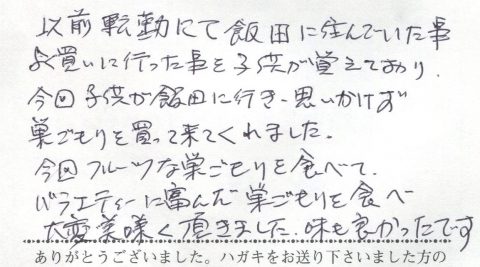 以前転勤にて飯田に住んでいた事
よく買いに行った事を子供が覚えており、
今回子供が飯田に行き、思いかけず
巣ごもりを買って来てくれました。
今回フルーツな巣ごもりを食べて、
バラエティーに富んだ巣ごもりを食べ
大変美味く頂きました。味も良かったです
ありがとうございました。ハガキをお送り下さいました方の